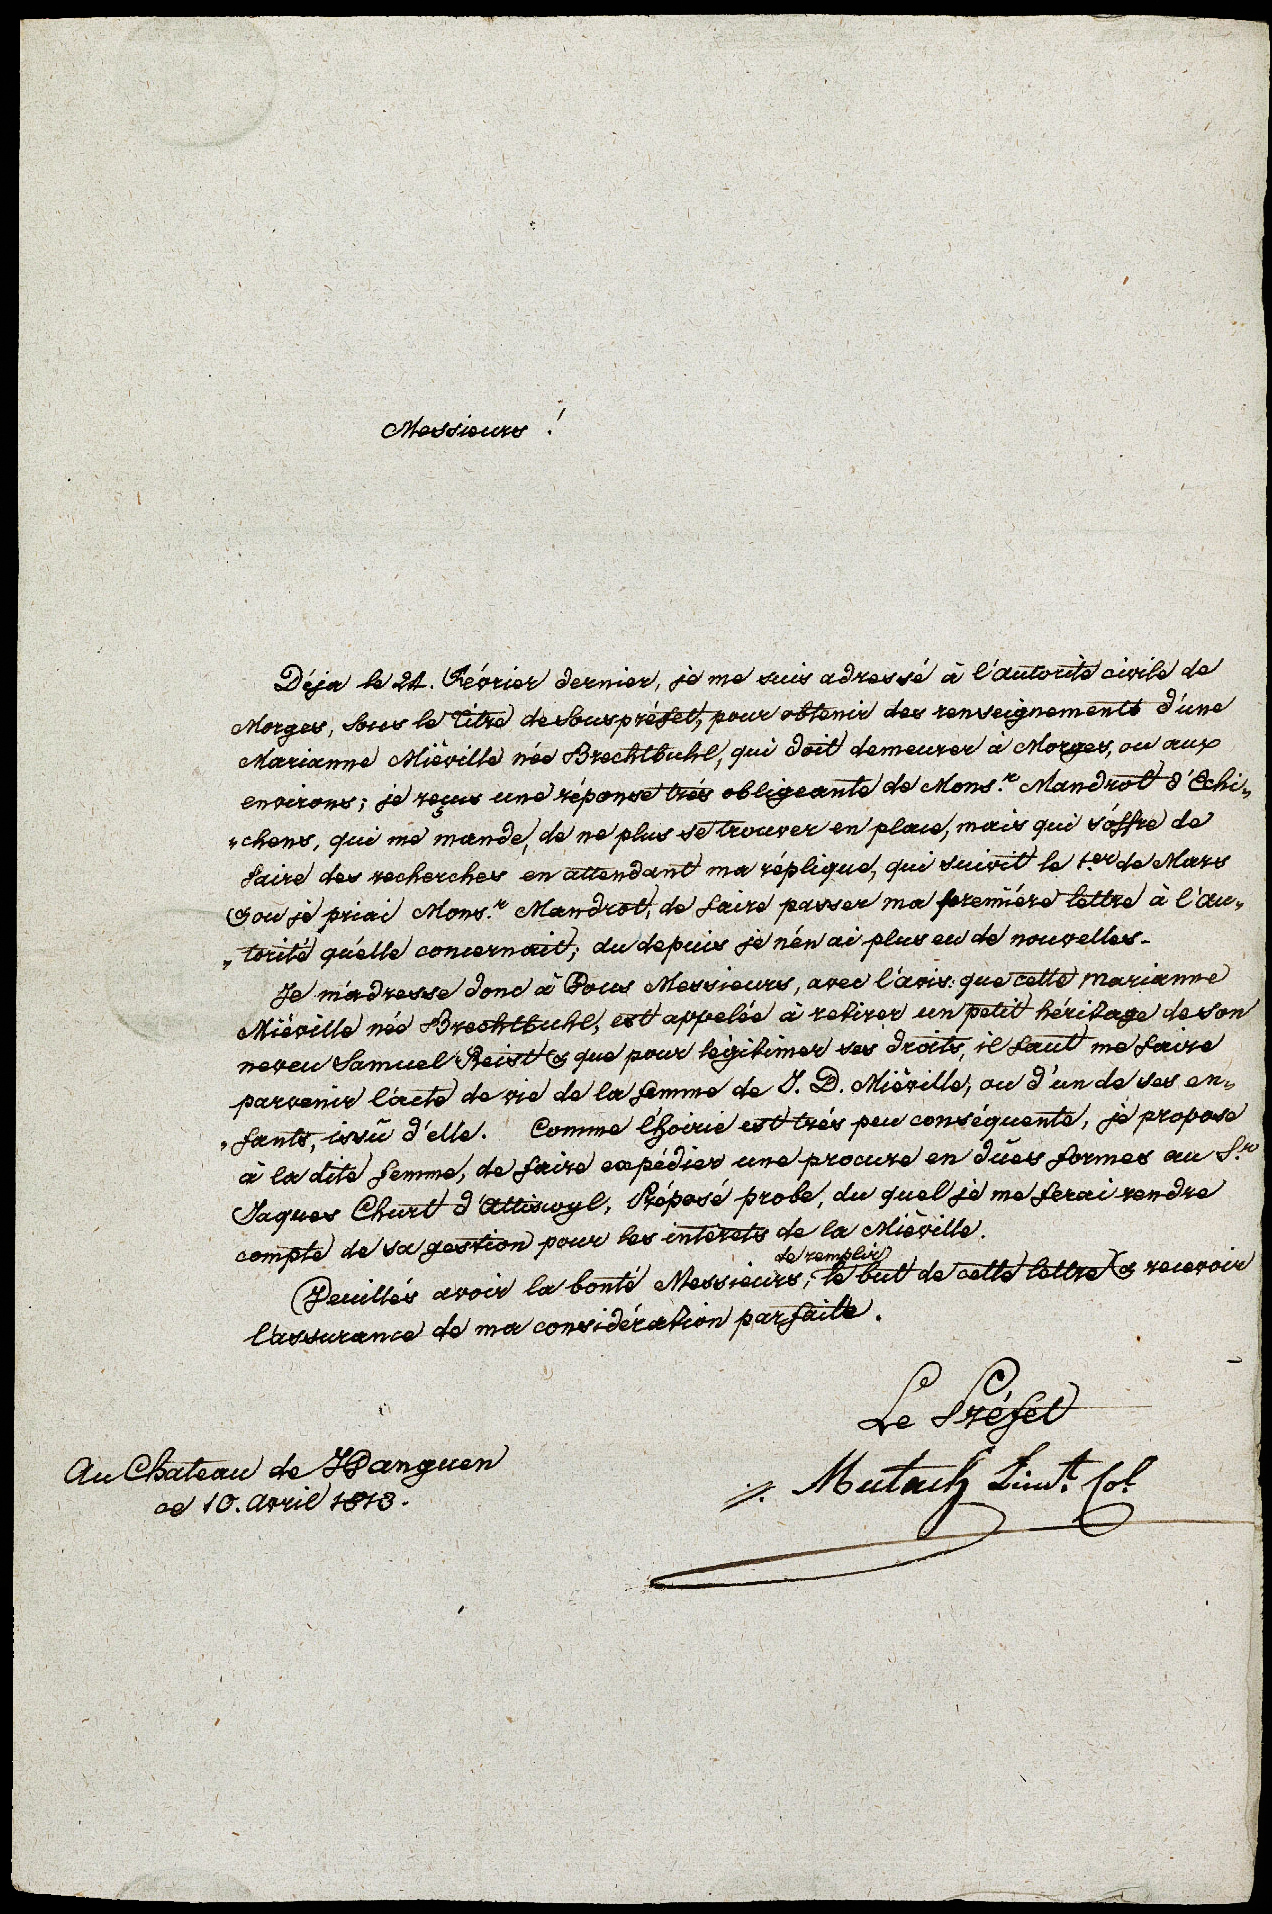 Messieurs !
Déja le 24. Février dernier, je me suis adressé à l'autorité civile de
Morges, sous le titre de Souspréfet, pour obtenir des renseignements d'une
Marianne Miéville née Brechtbuhl, qui doit demeurer à Morges, ou aux
environs; je reçus une réponse trés obligeante de Mons.r Mandrot d'Echi„
„chens, qui me mande, de ne plus se trouver en place, mais qui s'offre de
faire des recherches en attendant ma réplique, qui suivit le 1.er de Mars
& ou je priai Mons.r Mandrot, de faire passer ma premiére lettre à l'au„
„torité qu'elle concernait; du depuis je n'en ai plus eu de nouvelles.
Je m'adresse donc à Vous Messieurs, avec l'avis: que cette Marianne
Miéville née Brechtbuhl, est appelée à retirer un petit héritage de son
neveu Samuel Reist & que pour légitimer ses droits, il faut me faire
parvenir l'acte de vie de la femme de J. D. Miéville, ou d'un de ses en„
„fants, issû d'elle. Comme l'hoirie est trés peu conséquente, je propose
à la dite femme, de faire expédier une procure en dûes formes au S.r
Jaques Churt d'Attiswyl, Préposé probe, du quel je me ferai rendre
compte de sa gestion pour les intérets de la Miéville.
Veuillés avoir la bonté Messieurs, de remplir le but de cette lettre & recevoir
l'assurance de ma considération parfaite.
Le Préfet
Mutach Lieut. Col.
Au Chateau de Wanguen
ce 10. avril 1813.